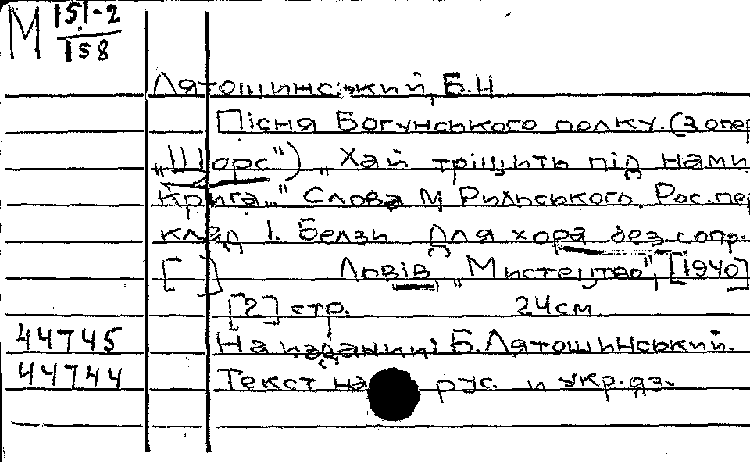 М 151-2
158
Лятошинський, Б.Н
Пісня Богунського полку. (З опер
„Щорс") „Хай тріщить під нами
крига..." Слова М Рильського. Рос. пер
клад І. Белзи для хора без сопр.
[ ] Львів, „Мистецтво", [1940]
[2] стр. 24 см.
44745 На издании: Б. Лятошинський.
44744 Текст на рус. и укр. яз.